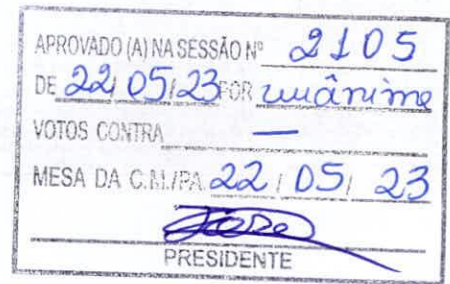 APROVADO (A) NA SESSÃO Nº 2105
DE 22/05/23 POR unânime
VOTOS CONTRA —
MESA DA C.M./PA. 22 / 05 / 23
PRESIDENTE